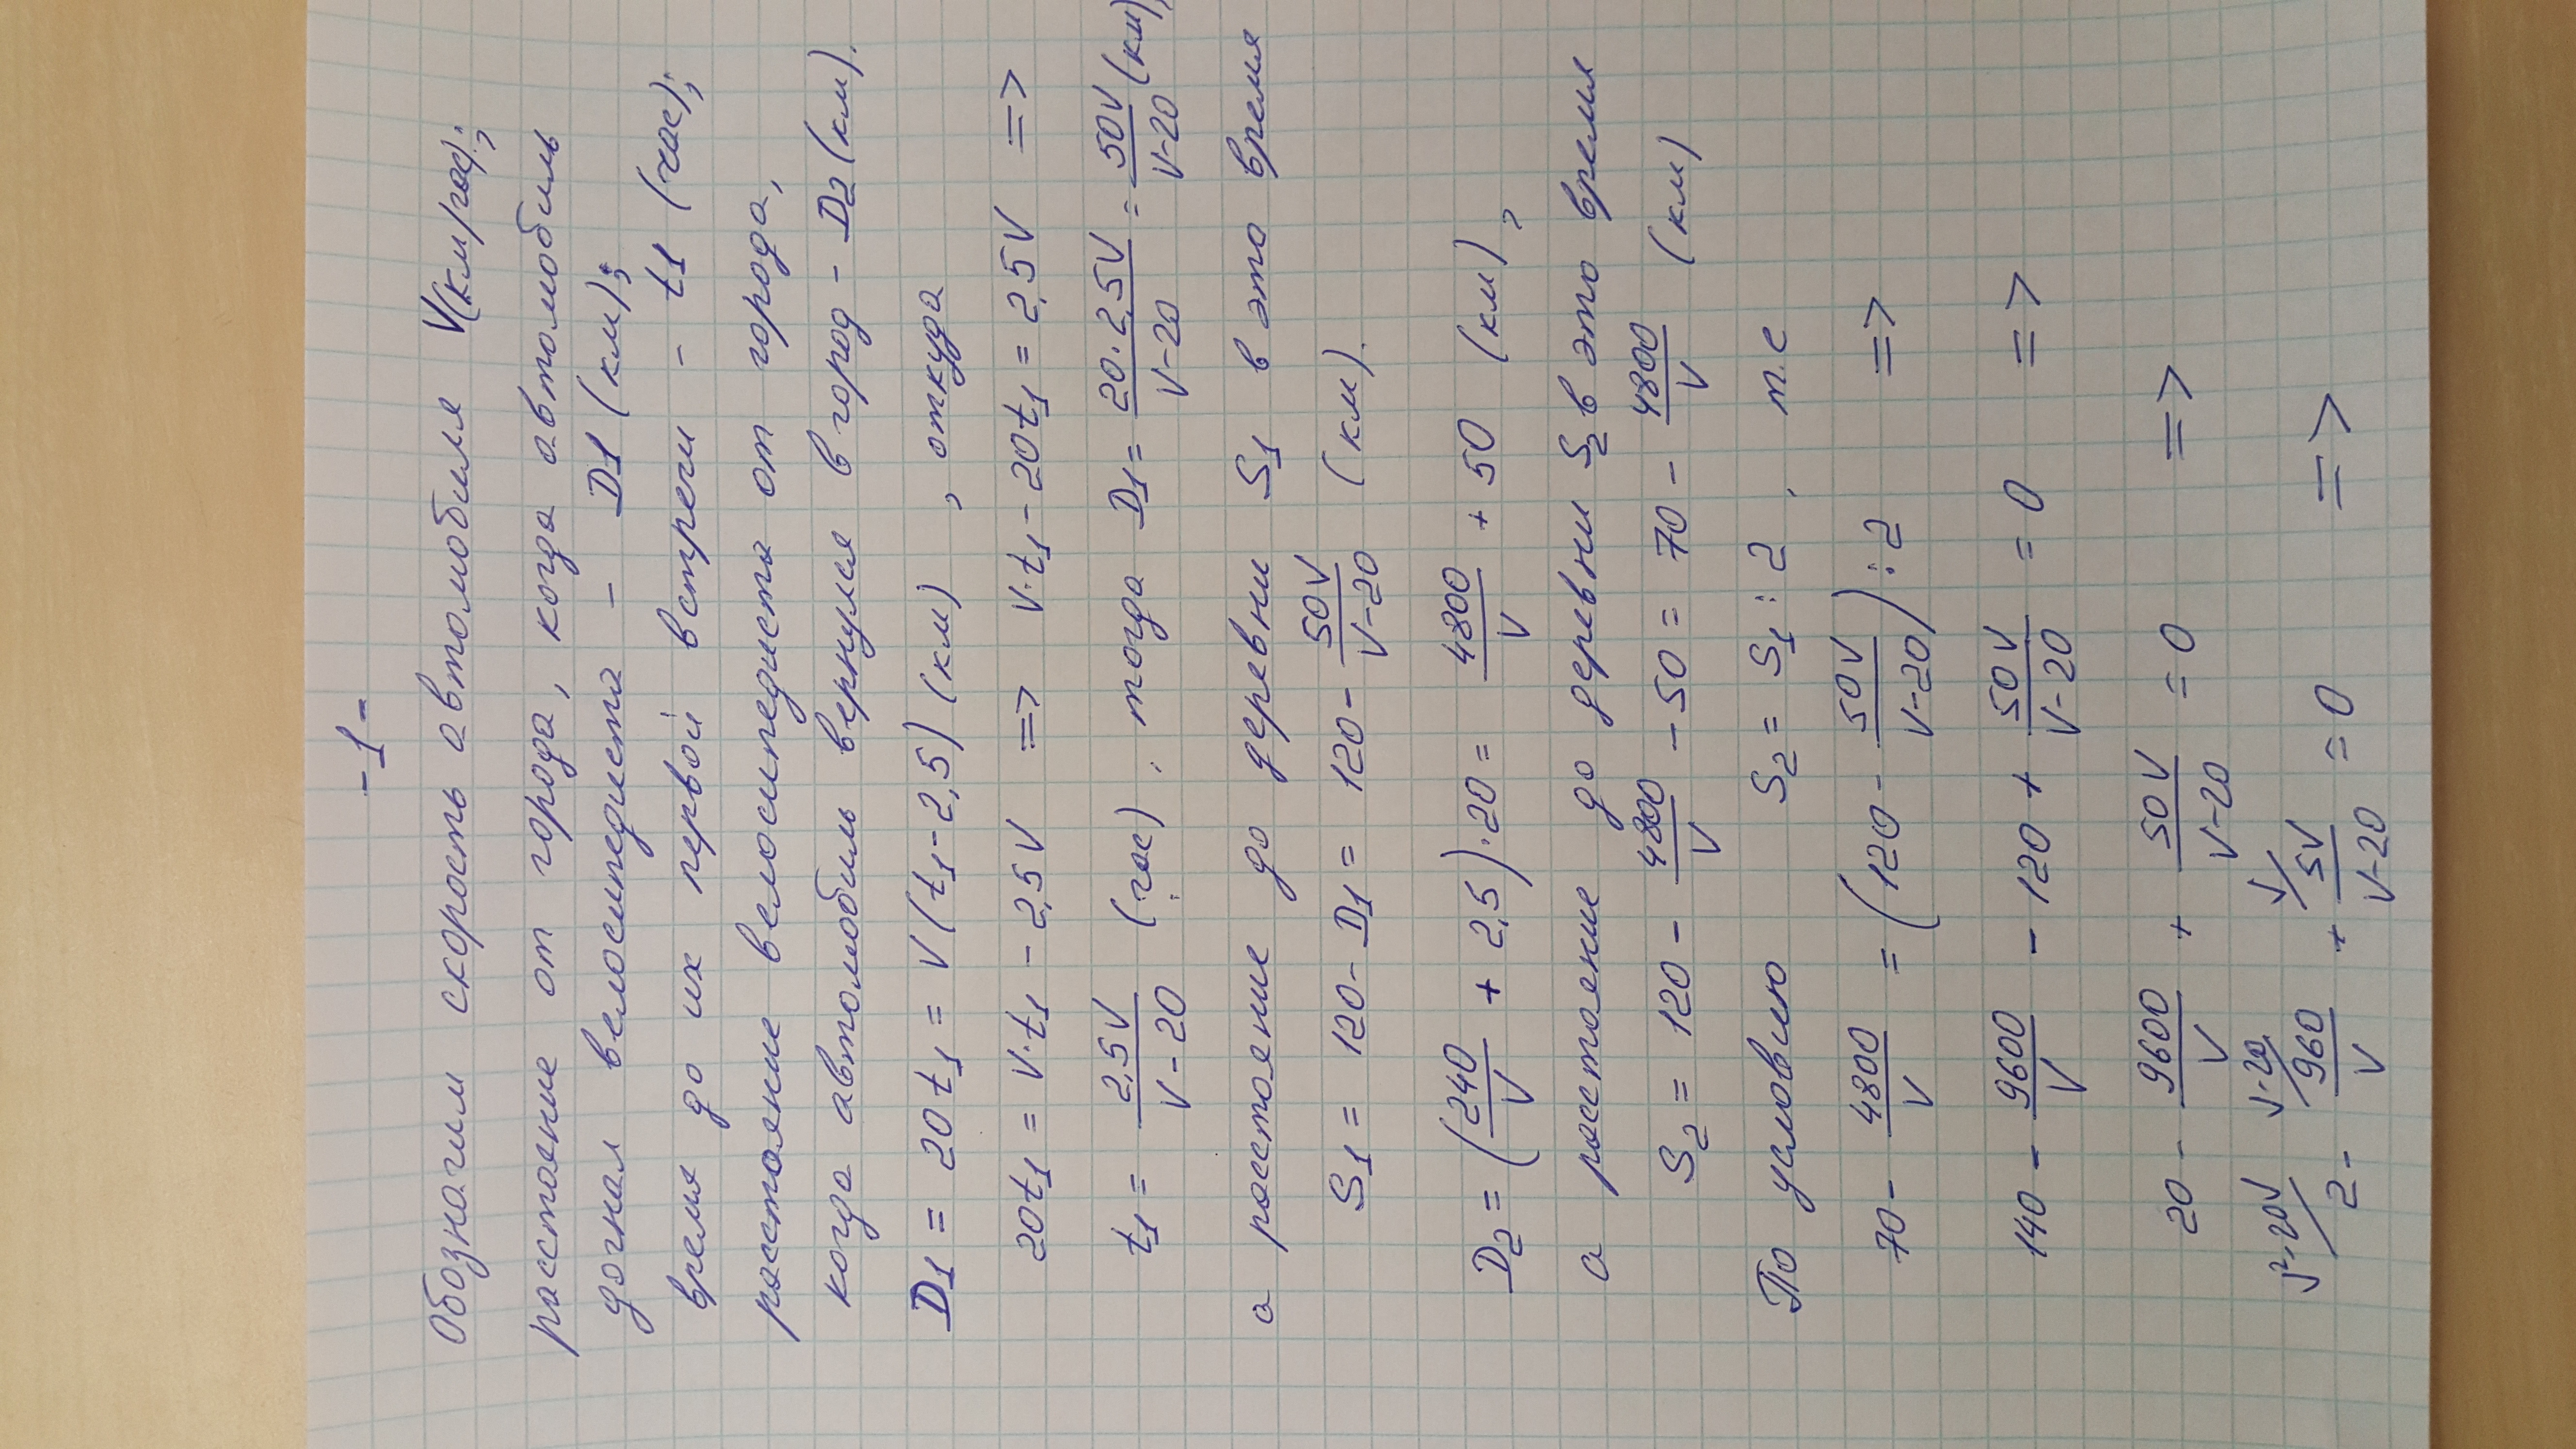 -1-
Обозначим скорость автомобиля V(км/час);
расстояние от города, когда автомобиль
догнал велосипедиста - D1 (км);
время до их первой встречи - t1 (час);
расстояние велосипедиста от города,
когда автомобиль вернулся в город - D2 (км).
D1 = 20t1 = V(t1-2,5) (км) , откуда
20t1 = V·t1 - 2,5V => V·t1 - 20t1 = 2,5V =>
t1 = 2,5V/(V-20) (час). тогда D1 = 20·2,5V/(V-20) = 50V/(V-20) (км),
а расстояние до деревни S1 в это время
S1 = 120 - D1 = 120 - 50V/(V-20) (км).
D2 = (240/V + 2,5)·20 = 4800/V + 50 (км),
а расстояние до деревни S2 в это время
S2 = 120 - 4800/V - 50 = 70 - 4800/V (км)
По условию S2 = S1 : 2 , т.е
70 - 4800/V = (120 - 50V/(V-20)) : 2 =>
140 - 9600/V - 120 + 50V/(V-20) = 0 =>
20 - 9600/V + 50V/(V-20) = 0 =>
V²-20V/ V-20/ V/
2 - 960/V + 5V/(V-20) = 0 =>